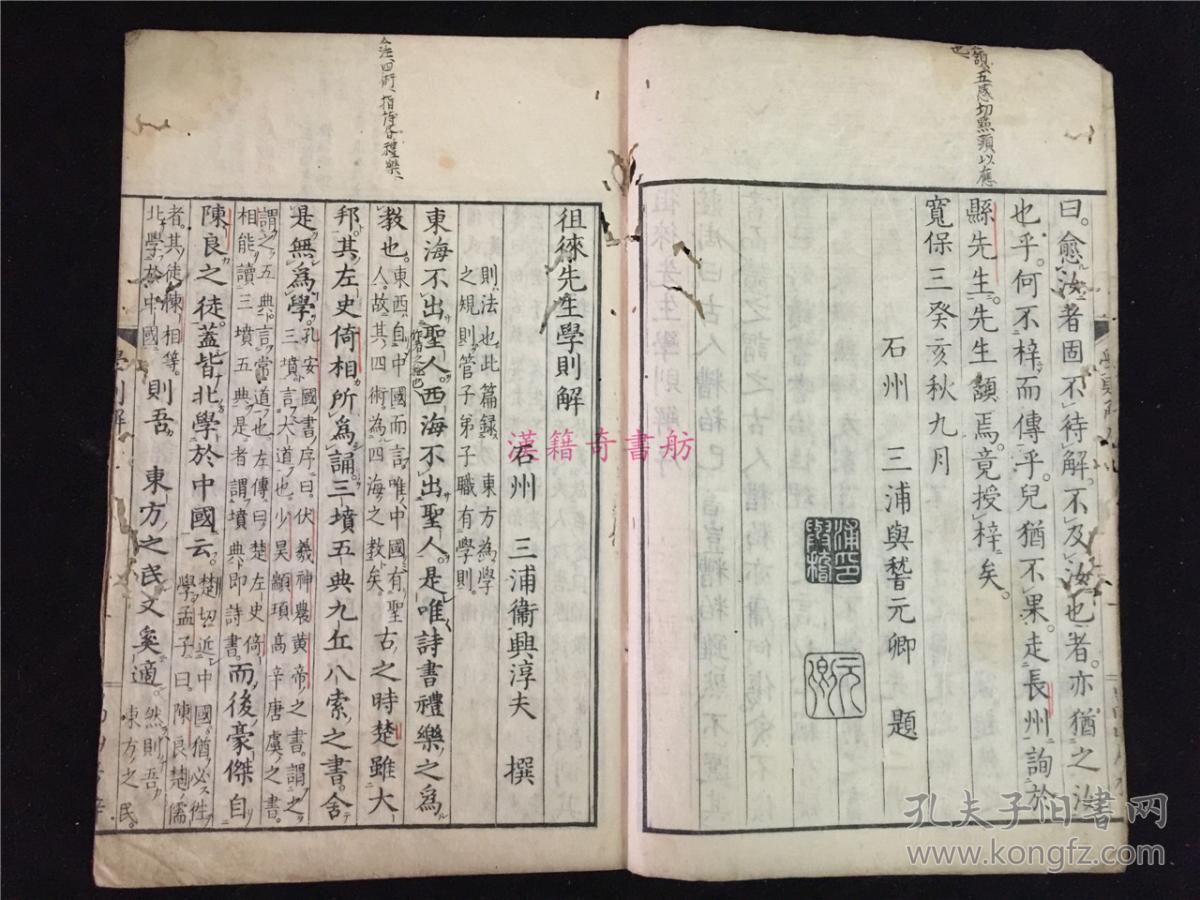 曰愈汝者固不待解不及汝也者亦猶之汝
也乎何不梓而傳乎兒猶不果走長州詢於
縣先生先生頷焉竟授梓矣
寬保三癸亥秋九月
石州 三浦與嵆元卿 題
徂徠先生學則解
則法也此篇録 東方為學
之規則管子弟子職有學則
石州 三浦衞興淳夫 撰
東海不出聖人西海不出聖人是唯詩書禮樂之為
教也東西自中國而言唯中國有聖
人故其四術為四海之教矣
古之時楚雖大
邦其左史倚相所為誦三墳五典九丘八索之書舍
是無為學孔安國書序曰伏羲神農黃帝之書謂之
三墳言大道也少昊顓頊高辛唐虞之書
謂之五典言常道也左傳曰楚左史倚
相能讀三墳五典是者謂墳典即詩書
而後豪傑自
陳良之徒蓋皆北學於中國云楚切近中國猶必往
學孟子曰陳良楚儒
者其徒陳相等
北學於中國
則吾 東方之民又奚適然則吾
東方之民
漢籍奇書舫
孔夫子旧書网
www.kongfz.com